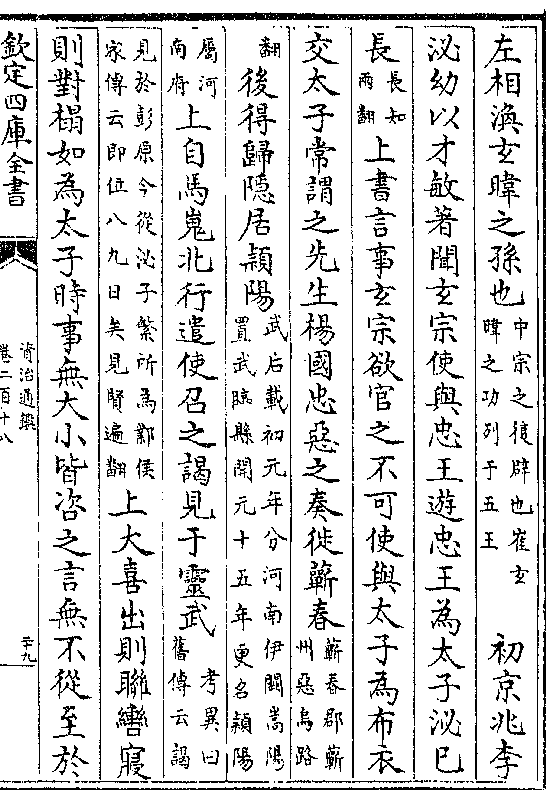 左相渙玄暐之孫也中宗之復辟也崔玄暐之功列于五王初京兆李
泌幼以才敏著聞玄宗使與忠王遊忠王為太子泌巳
長長知兩翻上書言事玄宗欲官之不可使與太子為布衣
交太子常謂之先生楊國忠惡之奏徙蘄春蘄春郡蘄州惡烏路
翻後得歸隱居潁陽武后載初元年分河南伊闕嵩陽置武臨縣開元十五年更名潁陽
屬河南府上自馬嵬北行遣使召之謁見于靈武考異曰舊傳云謁
見於彭原今從泌子繁所為鄴侯家傳云即位八九日矣見賢遍翻上大喜出則聯轡寢
則對榻如為太子時事無大小皆咨之言無不從至於
欽定四庫全書
資治通鑑
卷二百十八
二十九